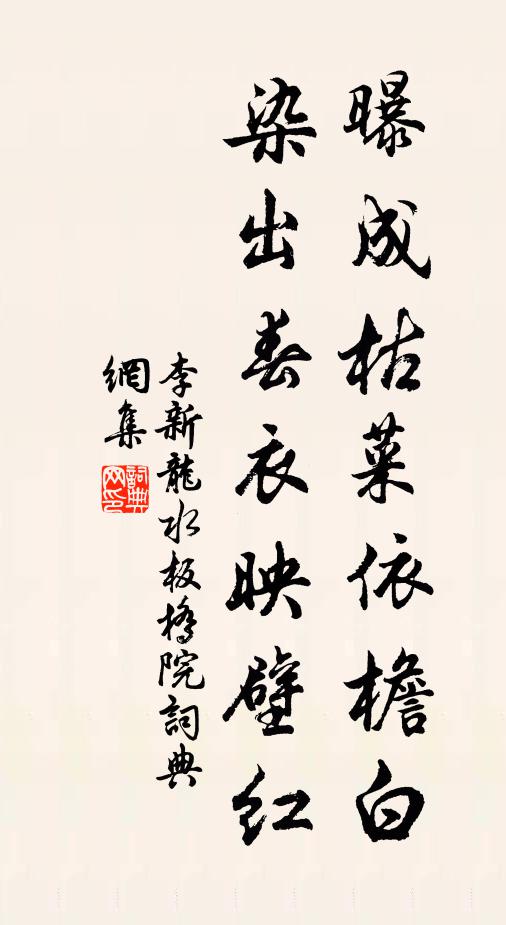 曝成枯菜依檐白
染出春衣映壁紅
李新龍水板橋院詞典
網集
詞典網印